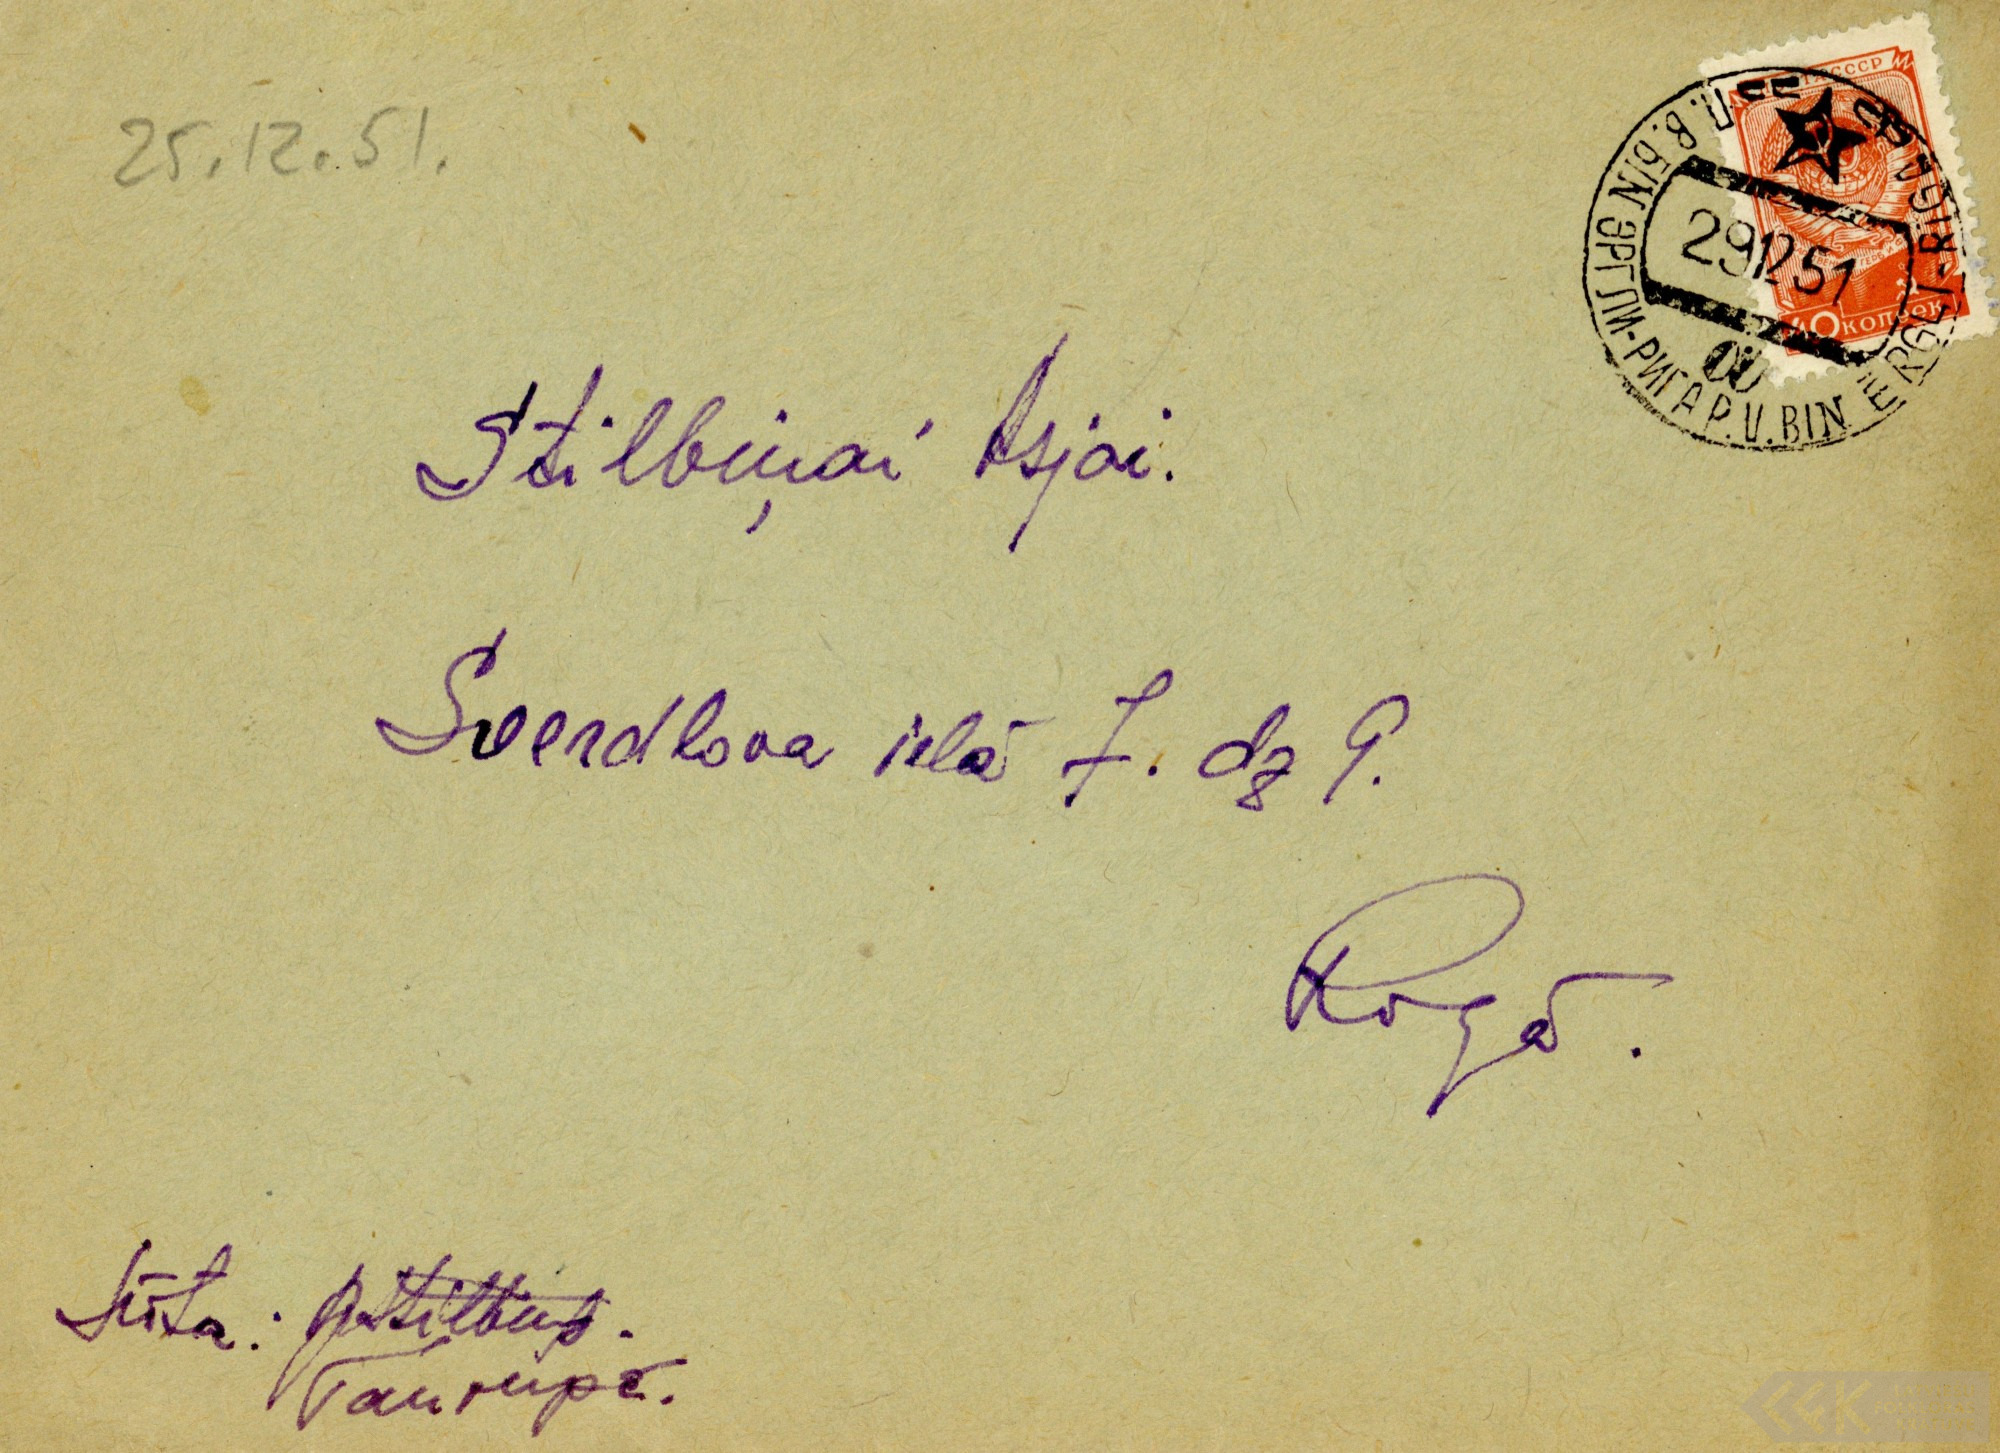 25.12.51.
29 12 51
ЭРГЛИ-РИГА P.V. BIN ERGLI-RIGA
40 КОПЕЕК
Stilbiņai Asjai.
Sverdlova ielā 7. dz 9.
Rīgā.
Sūta: Stilbiņš.
Taurupē.